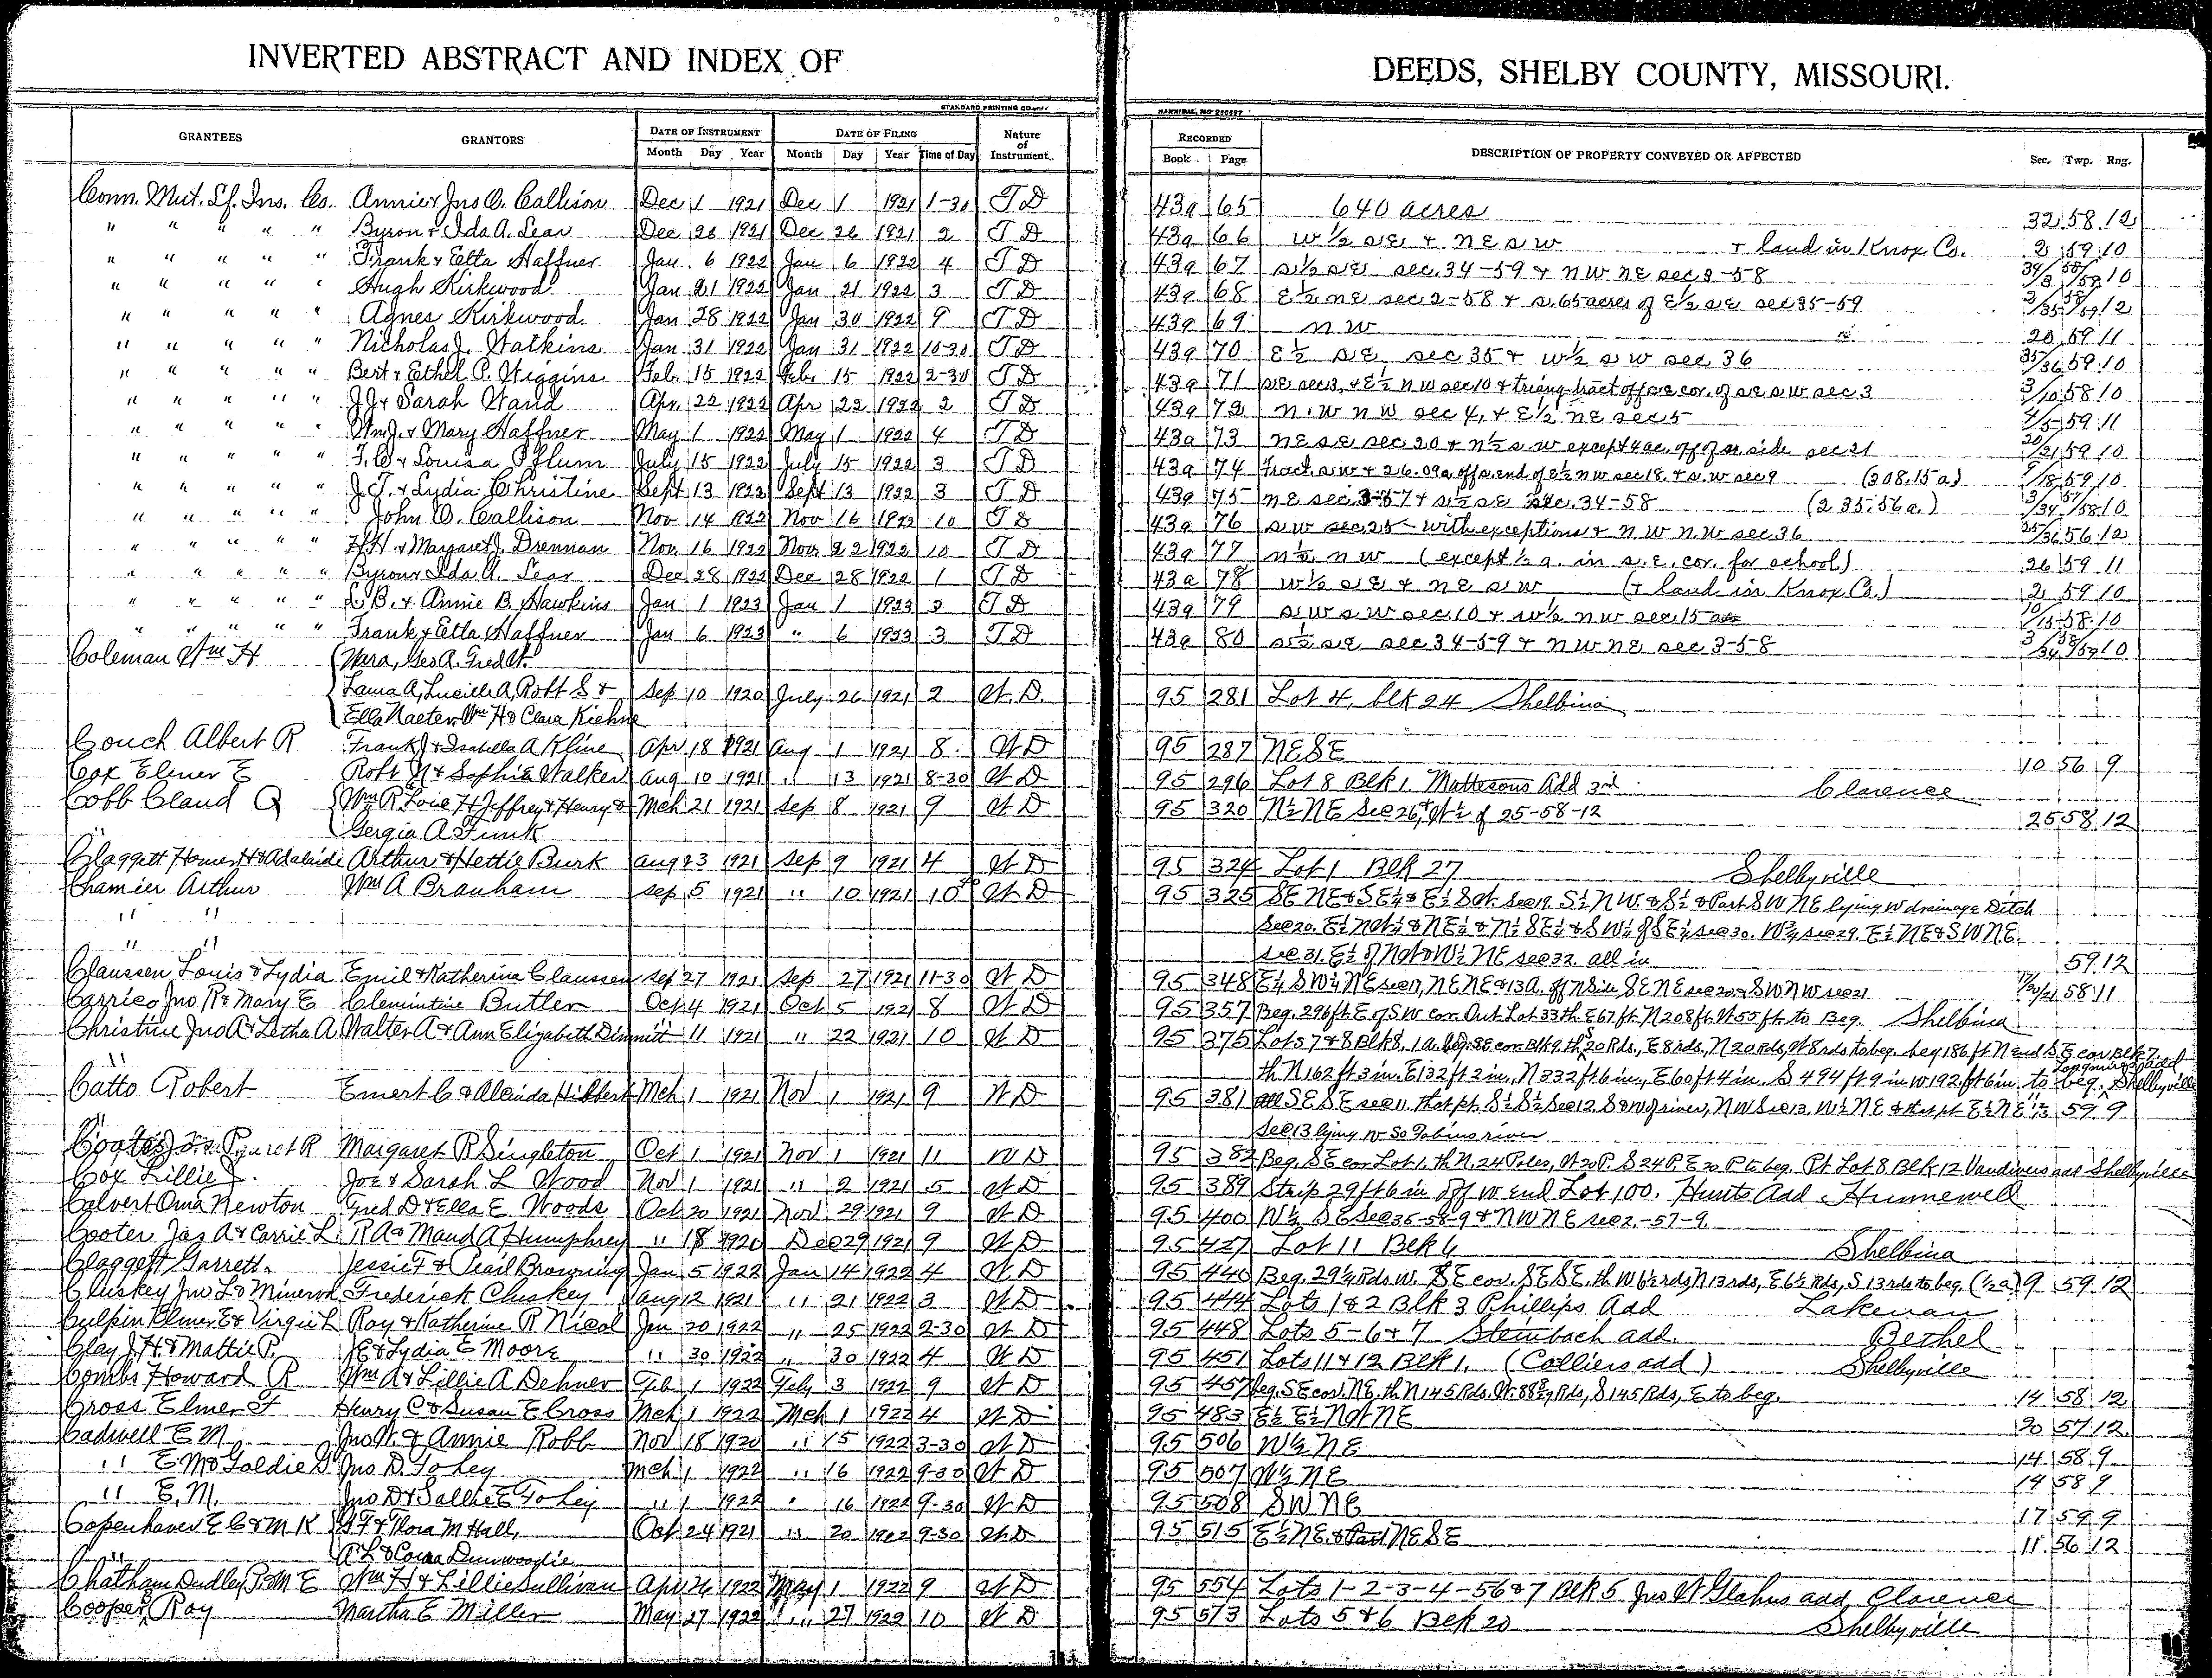 INVERTED ABSTRACT AND INDEX OF DEEDS, SHELBY COUNTY, MISSOURI.
STANDARD PRINTING CO HANNIBAL, MO
GRANTEES GRANTORS DATE OF INSTRUMENT DATE OF FILING Nature of Instrument RECORDED DESCRIPTION OF PROPERTY CONVEYED OR AFFECTED Sec. Twp. Rng.
Month Day Year Month Day Year Time of Day Book Page
Conn. Mut. Lf. Ins. Co. Annie & Jno O. Callison Dec 1 1921 Dec 1 1921 1-30 T D 43a 65 640 acres 32 58 12
" " " " " Byron & Ida A. Lear Dec 26 1921 Dec 26 1921 2 T D 43a 66 W ½ S E & N E S W & land in Knox Co. 2 59 10
" " " " " Frank & Etta Haffner Jan 6 1922 Jan 6 1922 4 T D 43a 67 S ½ S E sec. 34-59 & N W N E sec 3-58 34/3 58/59 10
" " " " " Hugh Kirkwood Jan 21 1922 Jan 21 1922 3 T D 43a 68 E ½ N E sec 2-58 & S. 65 acres of E ½ S E sec 35-59 2/35 58/59 12
" " " " " Agnes Kirkwood Jan 28 1922 Jan 30 1922 9 T D 43a 69 N W 20 59 11
" " " " " Nicholas J. Watkins Jan 31 1922 Jan 31 1922 10-30 T D 43a 70 E ½ S E sec 35 & W ½ S W sec 36 35/36 59 10
" " " " " Bert & Ethel P. Wiggins Feb. 15 1922 Feb. 15 1922 2-30 T D 43a 71 S E sec 3, & E ½ N W sec 10 & triang. tract off s e cor. of S E S W sec 3 3/10 58 10
" " " " " J J & Sarah Wand Apr. 22 1922 Apr 22 1922 2 T D 43a 72 N. W N W sec 4, & E ½ N E sec 5 4/5 59 11
" " " " " Wm J. & Mary Haffner May 1 1922 May 1 1922 4 T D 43a 73 N E S E sec 20 & N ½ S. W except 4 ac. off of side sec 21 20/21 59 10
" " " " " F. C. & Louisa Pflum July 15 1922 July 15 1922 3 T D 43a 74 fract. S W & 26.09a. off s. end of E ½ N W sec 18. & S. W sec 9 (308.15 a) 9/18 59 10
" " " " " J. T. & Lydia Christine Sept 13 1922 Sept 13 1922 3 T D 43a 75 N E sec. 3-57 & S ½ S E sec. 34-58 (235.56 a.) 3/34 57/58 10
" " " " " John O. Callison Nov 14 1922 Nov 16 1922 10 T D 43a 76 S W sec 25 - with exceptions & N W N W sec 36 25/36 56 12
" " " " " H. H. & Margaret J. Drennan Nov. 16 1922 Nov. 22 1922 10 T D 43a 77 N ½ N W (except ½ a. in S. E. cor. for school) 26 59 11
" " " " " Byron & Ida A. Lear Dec 28 1922 Dec 28 1922 1 T D 43a 78 W ½ S E & N E S W (& land in Knox Co.) 2 59 10
" " " " " L B. & Annie B. Hawkins Jan 1 1923 Jan 1 1923 3 T D 43a 79 S W S W sec. 10 & W ½ N W sec 15 10/15 58 10
" " " " " Frank & Etta Haffner Jan 6 1923 " 6 1923 3 T D 43a 80 S ½ S E sec 34-59 & N W N E sec 3-58 3/34 58/59 10
Coleman Wm H Geo A. Fred W.
Laura A, Lucille A, Robt S & Sep 10 1920 July 26 1921 2 W. D. 95 281 Lot 4, blk 24 Shelbina
Ella Naeter, Wm H & Clara Kiehne
Couch Albert R Frank J & Isabella A Kline Apr 18 1921 Aug 1 1921 8 W D 95 287 N E S E 10 56 9
Cox Elmer E Robt N & Sophia Walker Aug 10 1921 " 13 1921 8-30 W D 95 296 Lot 8 Blk 1. Mattesons Add 3rd Clarence
Cobb Claud Q Wm R Lois H Jeffrey & Henry & Mch 21 1921 Sep 8 1921 9 W D 95 320 N ½ NE Sec 26, & W ½ of 25-58-12 25 58 12
Gergia A Funk
Claggett Homer H & Adelaide Arthur & Hettie Burk Aug 23 1921 Sep 9 1921 4 W D 95 324 Lot 1 Blk 27 Shelbyville
Chamier Arthur Wm A Branham Sep 5 1921 " 10 1921 10 W D 95 325 SE NE & SE ¼ & E ½ S W. Sec 19. S ½ N W. & S ½ & Part S W NE lying W drainage Ditch
" " Sec 20. E ½ NW ¼ & NE ¼ & N ½ SE ¼ & S W ¼ of SE ¼ sec 30. W ½ sec 29. E ½ NE & S W NE.
" " sec 31. E ½ of NW & W ½ NE sec 32. all in 59 12
Claussen Louis & Lydia Emil & Katherina Claussen Sep 27 1921 Sep 27 1921 11-30 W D 95 348 E ½ SW ¼ NE sec 17, NE NE & 13 A. off N Side SE NE sec 20 & SW NW sec 21 17/20/21 58 11
Carrico Jno R & Mary E Clemintine Butler Oct 4 1921 Oct 5 1921 8 W D 95 357 Beg. 296 ft E of S W cor Out Lot 33 th E 67 ft N 208 ft W 55 ft to Beg. Shelbina
Christine Jno A & Letha A. Walter A & Ann Elizabeth Dimmitt " 11 1921 " 22 1921 10 W D 95 375 Lots 7 & 8 Blk 8, 1 a. beg. SE cor. Blk 9 th S 20 Rds., E 8 rds, N 20 Rds, W 8 rds to beg. beg 186 ft N end S E cor Blk 7
" th N 162 ft 3 in. E 132 ft 2 in., N 332 ft 6 in., E 60 ft 4 in. S 494 ft 9 in W 192 ft 6 in. to beg. add Shelbyville
Catto Robert Emert C & Alcinda Hilbert Mch 1 1921 Nov 1 1921 9 W D 95 381 all SE SE sec 11. that pt. S ½ S ½ Sec 12 S & W of river, NW Sec 13. W ½ NE & that pt E ½ NE 59 9
Sec 13 lying W So Fabius river
Margaret R Singleton Oct 1 1921 Nov 1 1921 11 W D 95 382 Beg. S E cor Lot 1. th N. 24 Poles, W 20 P. S 24 P. E 20 P to beg. Pt Lot 8 Blk 12 Vandivers add Shelbyville
Cox Lillie J. Joe & Sarah L Wood Nov 1 1921 " 2 1921 5 W D 95 389 Strip 29 ft 6 in off W end Lot 100. Hunts Add. Hunnewell
Calvert Oma Newton Fred D & Ella E Woods Oct 20 1921 Nov 29 1921 9 W D 95 400 W ½ SE sec 35-58-9 & N W N E sec 2.-57-9.
Cooter Jas A & Carrie L. R A & Maud A Humphrey " 18 1920 Dec 29 1921 9 W D 95 427 Lot 11 Blk 6 Shelbina
Claggett Garrett. Jessie F & Pearl Browning Jan 5 1922 Jan 14 1922 4 W D 95 440 Beg. 29 ¼ Rds W. S E cor. SE SE. th W 6 ½ rds, N 13 rds, E 6 ½ Rds, S 13 rds to beg. (½ a) 9 59 12
Cluskey Jno L & Minerva Frederick Cluskey Aug 12 1921 " 21 1922 3 W D 95 444 Lots 1 & 2 Blk 3 Phillips Add Lakenan
Culpin Elmer E & Virgie L Roy & Katherine R Nicol Jan 20 1922 " 25 1922 2-30 W D 95 448 Lots 5-6 & 7 Steinbach add. Bethel
Clay J H & Mattie P. J E & Lydia E Moore " 30 1922 " 30 1922 4 W D 95 451 Lots 11 & 12 Blk 1. (Colliers add) Shelbyville
Combs Howard R Wm A & Lillie A Dehner Feb 1 1922 Feby 3 1922 9 W D 95 457 beg. S E cor. NE. th N 145 Rds. W. 88 Rds, S 145 Rds, E to beg. 14 58 12
Cross Elmer F Henry C & Susan E Cross Mch 1 1922 Mch 1 1922 4 W D 95 483 E ½ E ½ NW NE 20 57 12
Cadwell E M Jno W. & Annie Robb Nov 18 1920 " 15 1922 3-30 W D 95 506 W ½ NE 14 58 9
" E M & Goldie D Jno D. Fohey Mch 1 1922 " 16 1922 9-30 W D 95 507 W ½ NE 14 58 9
" E. M. Jno D & Sallie E Fohey " 1 1922 " 16 1922 9-30 W D 95 508 SW NE 17 59 9
Copenhaver E C & M K G F & Flora M Hall, Oct 24 1921 " 20 1922 9-30 W D 95 515 E ½ NE. & Part NE SE 11 56 12
" A L & Coraa Dunwoodie
Chatham Dudley P. & M E Wm H & Lillie Sullivan Apr 26 1922 May 1 1922 9 W D 95 554 Lots 1-2-3-4-5 6 & 7 Blk 5 Jno W Glahns add, Clarence
Cooper, Roy Martha E Miller May 27 1922 " 27 1922 10 W D 95 573 Lots 5 & 6 Blk 20 Shelbyville